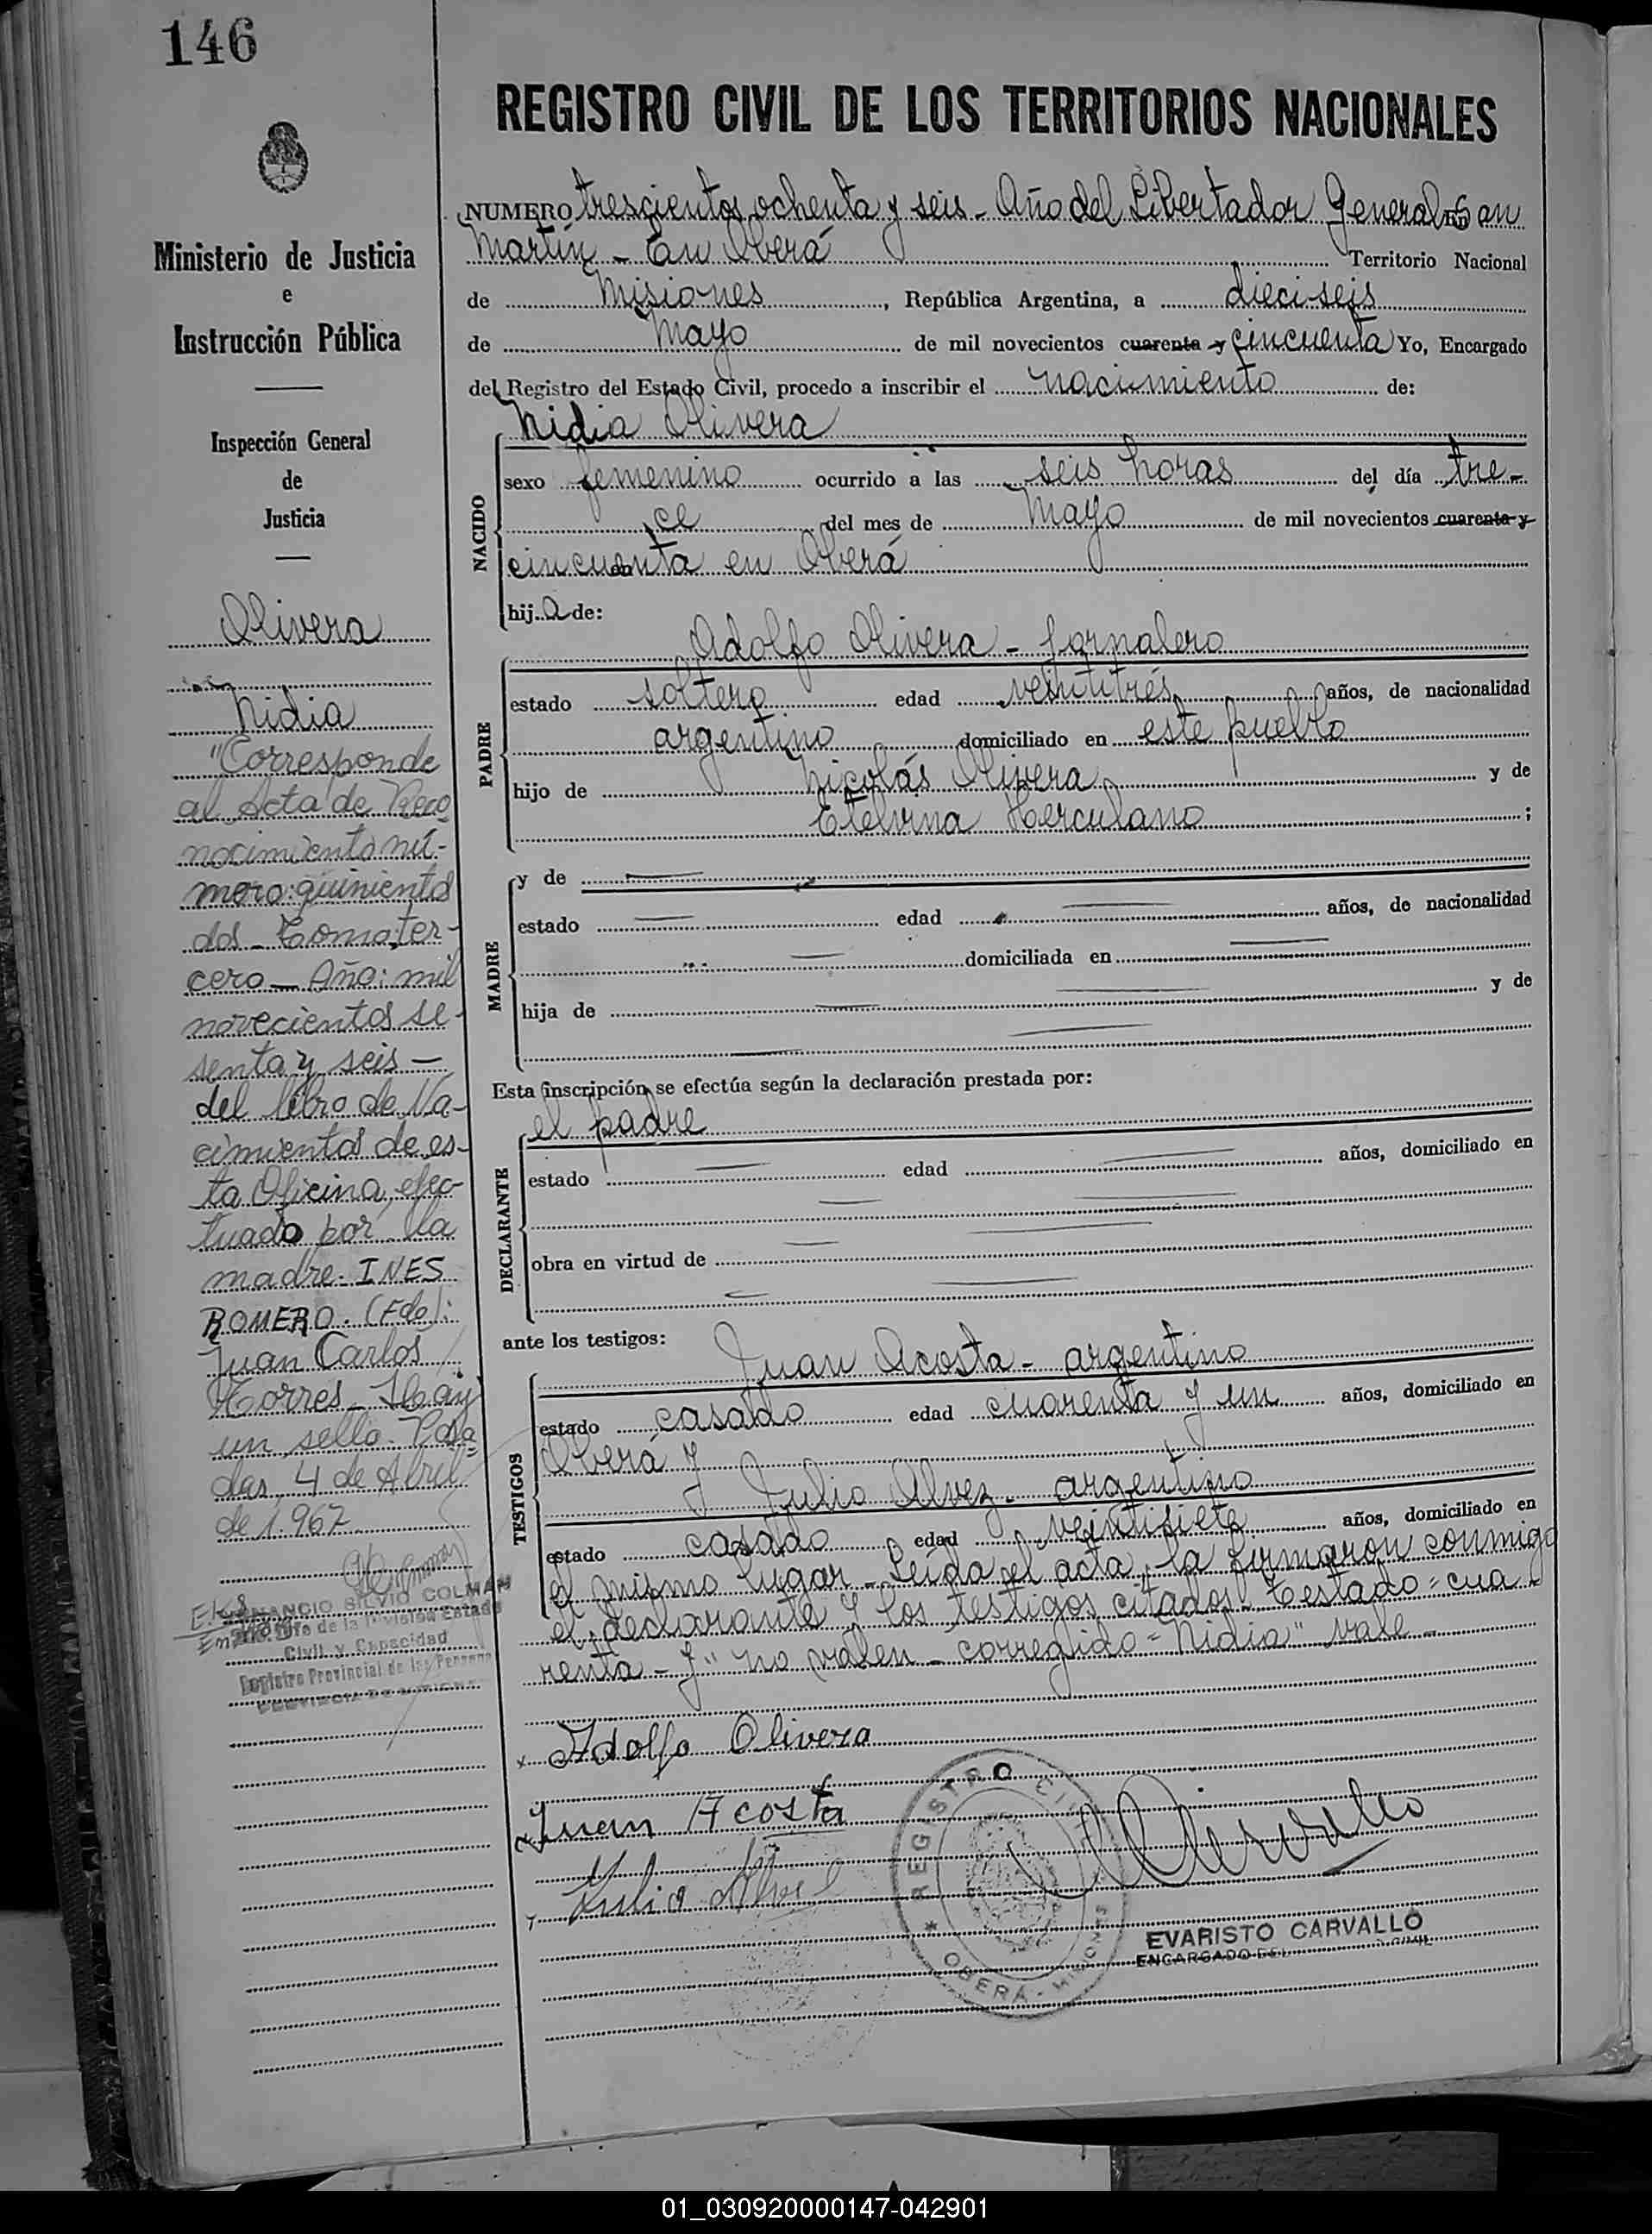 146
Ministerio de Justicia
e
Instrucción Pública
Inspección General
de
Justicia
Olivera
Nidia
"Corresponde
al Acta de Reco
nocimiento nú-
mero: quinientos
dos - Tomo: ter-
cero - Año: mil
novecientos se-
senta y seis -
del libro de Na-
cimientos de es-
ta Oficina, efec-
tuado por la
madre. INES
ROMERO. (Fdo):
Juan Carlos
Torres - Hay
un sello. Posa
das, 4 de Abril
de 1.967
VENANCIO SILVIO COLMAN
de la División Estado
Civil y Capacidad
Registro Provincial de las Personas
PROVINCIA DE MISIONES
REGISTRO CIVIL DE LOS TERRITORIOS NACIONALES
NUMERO trescientos ochenta y seis - Año del Libertador General San
Martín - En Oberá Territorio Nacional
de Misiones, República Argentina, a dieciseis
de Mayo de mil novecientos cuarenta y cincuenta Yo, Encargado
del Registro del Estado Civil, procedo a inscribir el nacimiento de:
Nidia Olivera
NACIDO
sexo femenino ocurrido a las seis horas del día tre-
ce del mes de Mayo de mil novecientos cuarenta y
cincuenta en Oberá
hija de:
Adolfo Olivera - jornalero
PADRE
estado soltero edad veintitrés años, de nacionalidad
argentino domiciliado en este pueblo
hijo de Nicolás Olivera y de
Etelvina Herculano ;
MADRE
y de
estado edad años, de nacionalidad
domiciliada en
hija de y de
Esta inscripción se efectúa según la declaración prestada por:
el padre
DECLARANTE
estado edad años, domiciliado en
obra en virtud de
ante los testigos:
Juan Acosta - argentino
TESTIGOS
estado casado edad cuarenta y un años, domiciliado en
Oberá y
Julio Alvez - argentino
estado casado edad veintisiete años, domiciliado en
el mismo lugar - Leída el acta, la firmaron conmigo
el declarante y los testigos citados - Testado = cua
renta - y" no valen - corregido = "Nidia" vale -
Adolfo Olivera
Juan Acosta
Julio
REGISTRO CIVIL
OBERÁ - MISIONES
EVARISTO CARVALLO
ENCARGADO DEL CIVIL
01_030920000147-042901